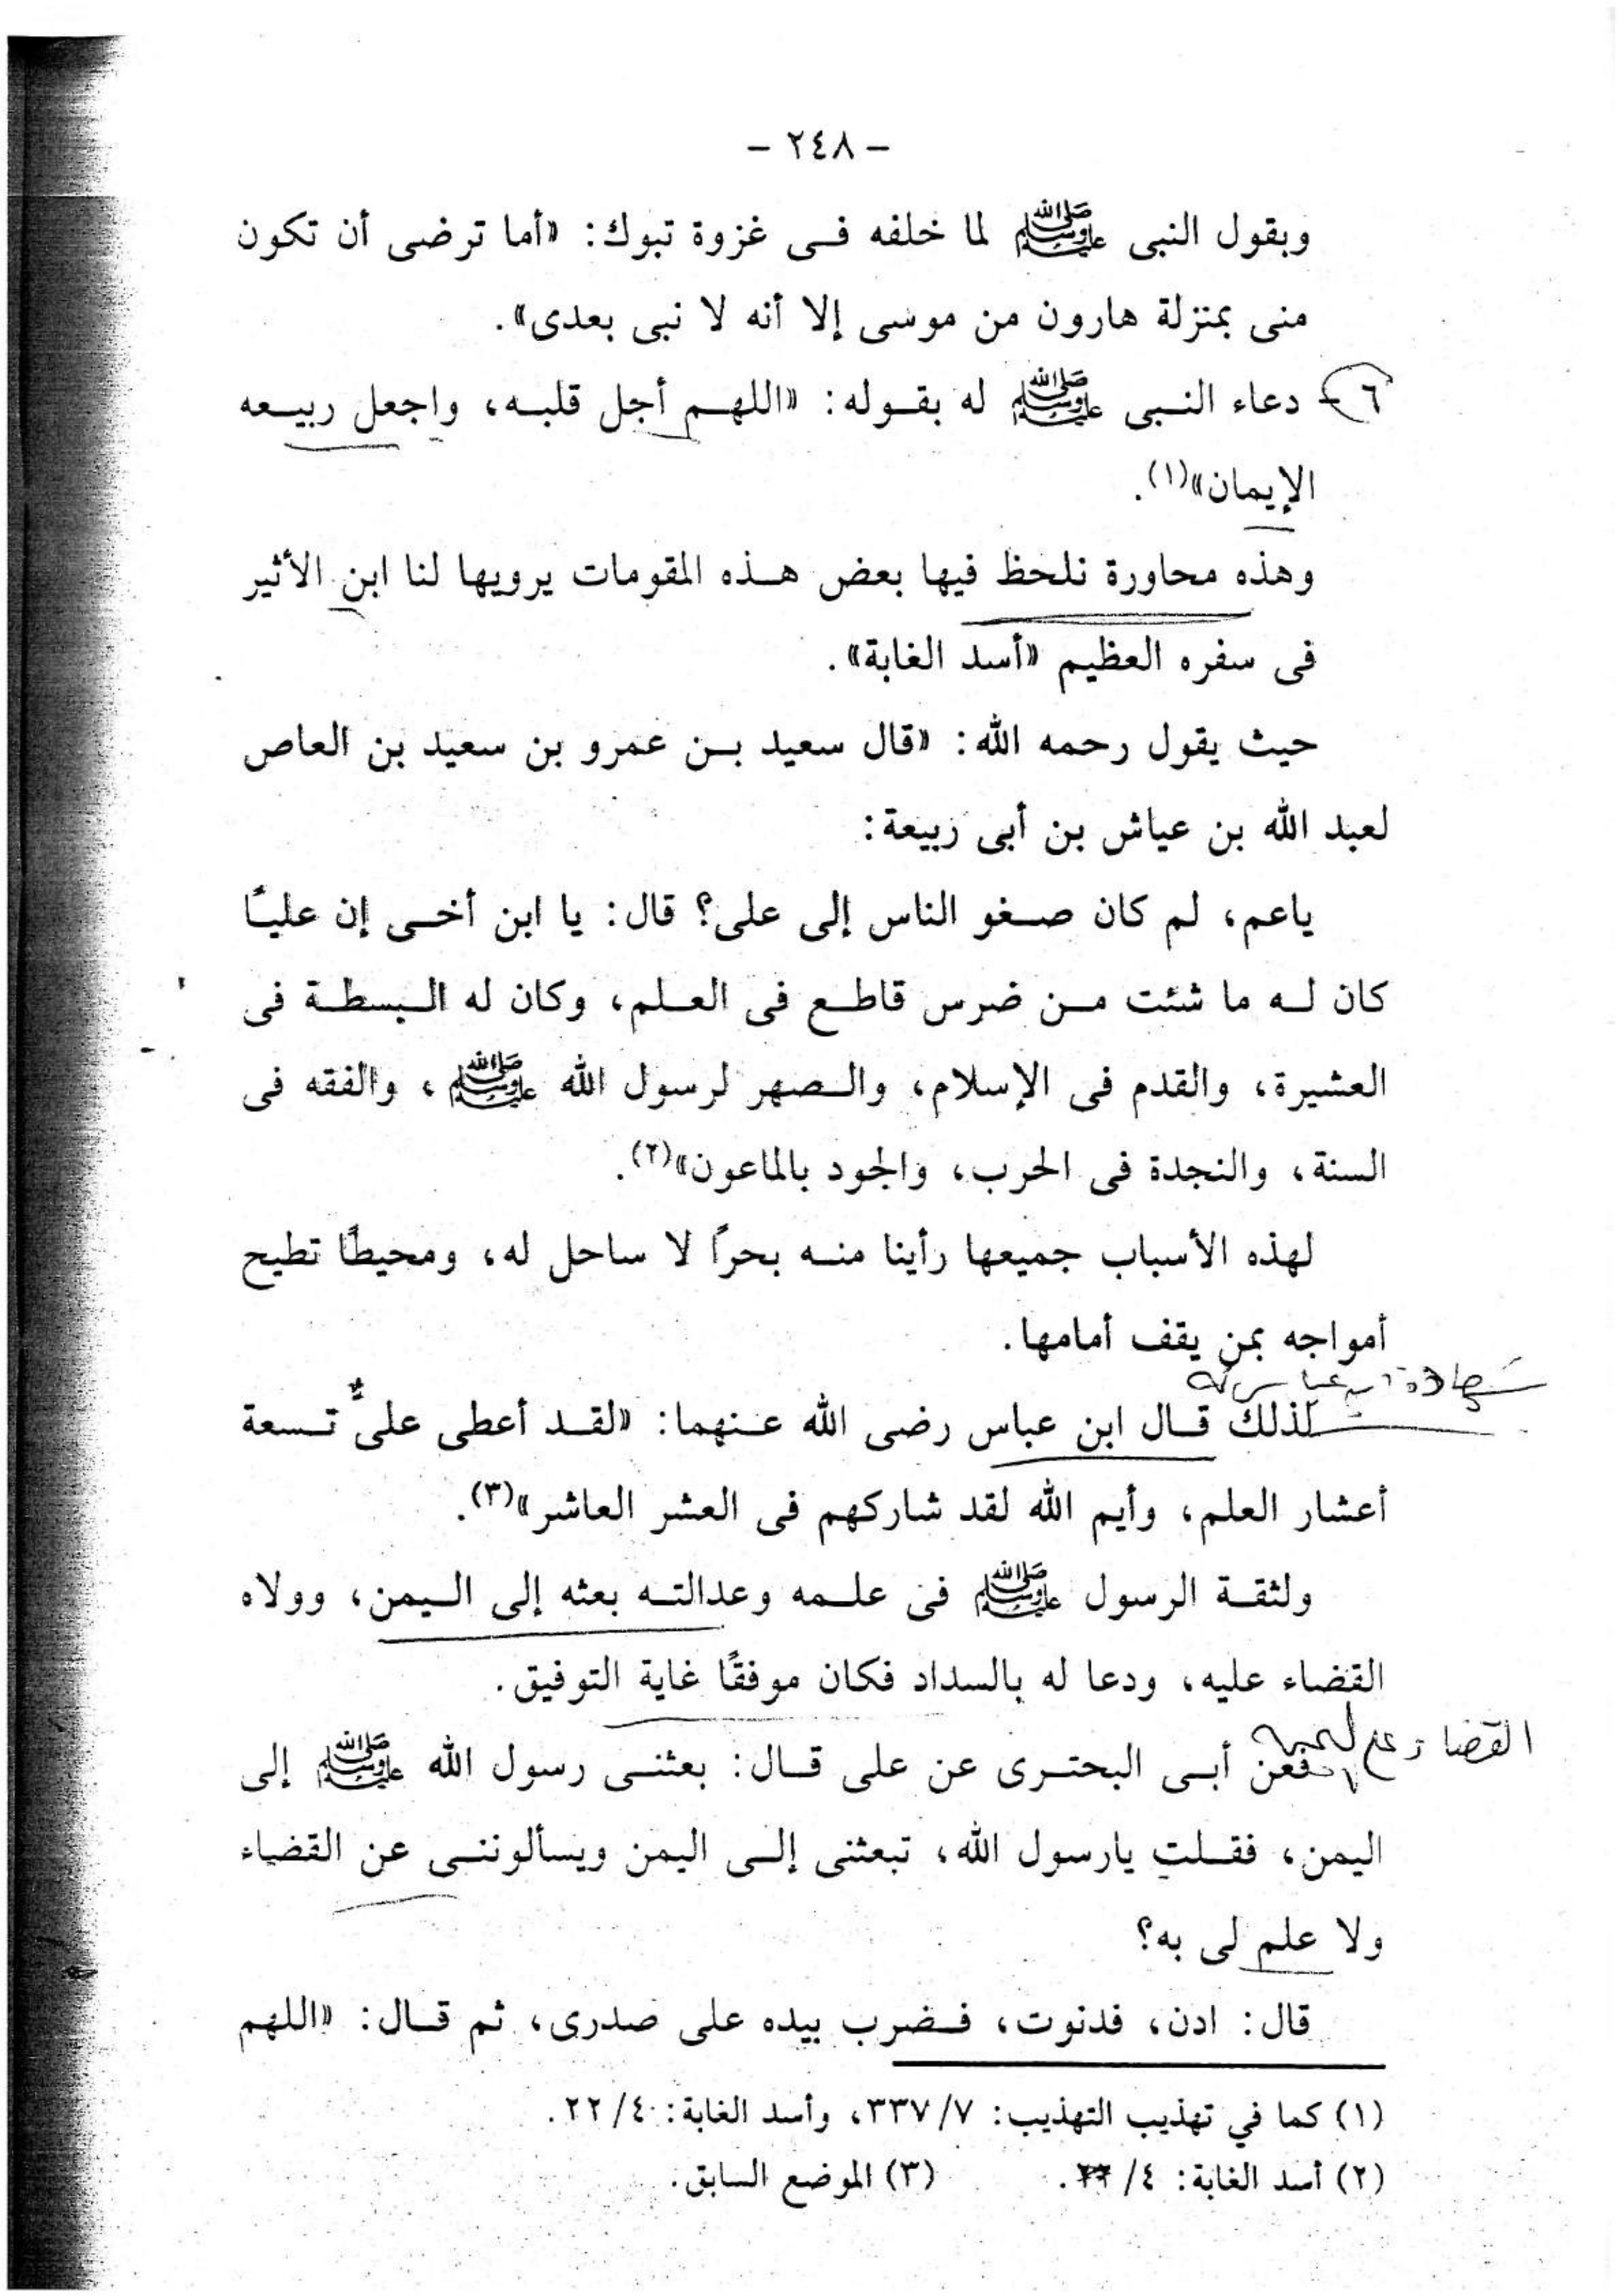 - ٢٤٨ -
وبقول النبى ﷺ لما خلفه فى غزوة تبوك: «أما ترضى أن تكون
منى بمنزلة هارون من موسى إلا أنه لا نبى بعدى».
٦- دعاء النبى ﷺ له بقوله: «اللهم أجل قلبه، واجعل ربيعه
الإيمان»(١).
وهذه محاورة نلحظ فيها بعض هذه المقومات يرويها لنا ابن الأثير
فى سفره العظيم «أسد الغابة».
حيث يقول رحمه الله: «قال سعيد بن عمرو بن سعيد بن العاص
لعبد الله بن عياش بن أبى ربيعة:
ياعم، لم كان صغو الناس إلى على؟ قال: يا ابن أخى إن عليًا
كان له ما شئت من ضرس قاطع فى العلم، وكان له البسطة فى
العشيرة، والقدم فى الإسلام، والصهر لرسول الله ﷺ، والفقه فى
السنة، والنجدة فى الحرب، والجود بالماعون»(٢).
لهذه الأسباب جميعها رأينا منه بحرًا لا ساحل له، ومحيطًا تطيح
أمواجه بمن يقف أمامها.
شهادة ابن عباس له
لذلك قال ابن عباس رضى الله عنهما: «لقد أعطى علىٌّ تسعة
أعشار العلم، وأيم الله لقد شاركهم فى العشر العاشر»(٣).
ولثقة الرسول ﷺ فى علمه وعدالته بعثه إلى اليمن، وولاه
القضاء عليه، ودعا له بالسداد فكان موفقًا غاية التوفيق.
القضا
فعن أبى البحترى عن على قال: بعثنى رسول الله ﷺ إلى
اليمن، فقلت يارسول الله، تبعثنى إلى اليمن ويسألوننى عن القضاء
ولا علم لى به؟
قال: ادن، فدنوت، فضرب بيده على صدرى، ثم قال: «اللهم
(١) كما في تهذيب التهذيب: ٣٣٧/٧، وأسد الغابة: ٢٢/٤.
(٢) أسد الغابة: ٤/ . (٣) الموضع السابق.